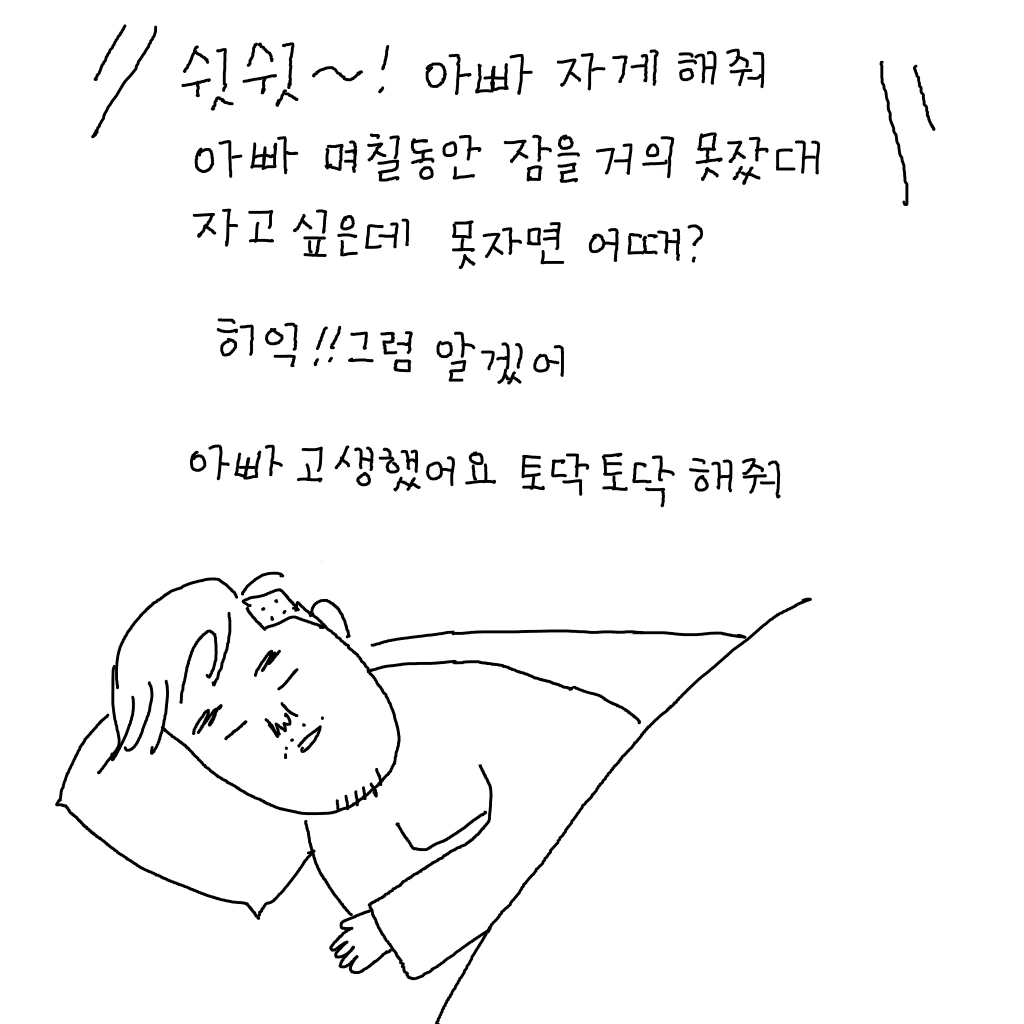 쉿쉿~! 아빠 자게 해줘
아빠 며칠동안 잠을 거의 못잤대
자고 싶은데 못자면 어때?
허익!!그럼 알겠어
아빠 고생했어요 토닥토닥 해줘